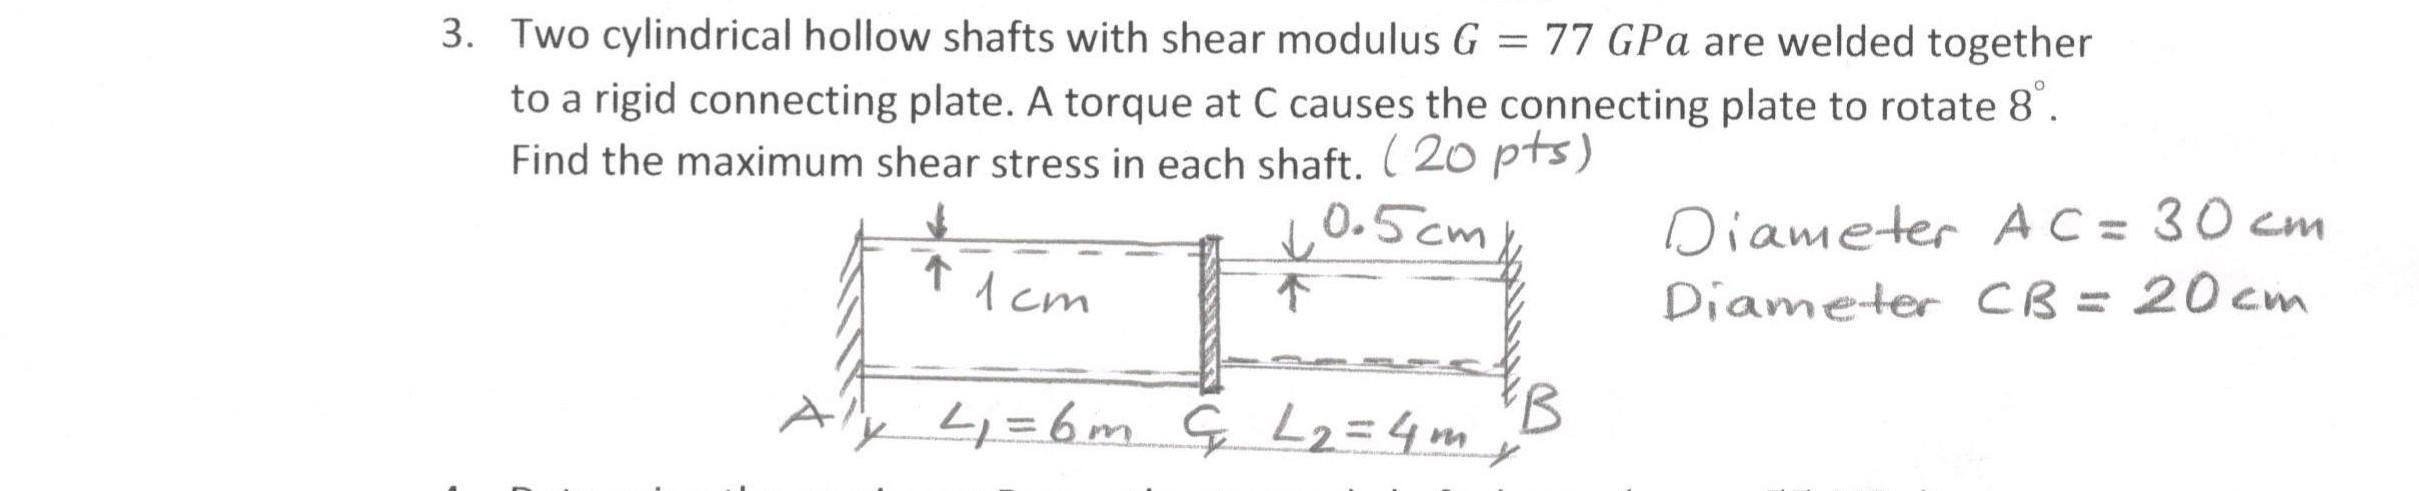 3. Two cylindrical hollow shafts with shear modulus G = 77 GPa are welded together
to a rigid connecting plate. A torque at C causes the connecting plate to rotate 8°.
Find the maximum shear stress in each shaft. (20 pts)
0.5cm
Diameter AC = 30 cm
1 cm
Diameter CB = 20 cm
A L1 = 6m C L2 = 4m B